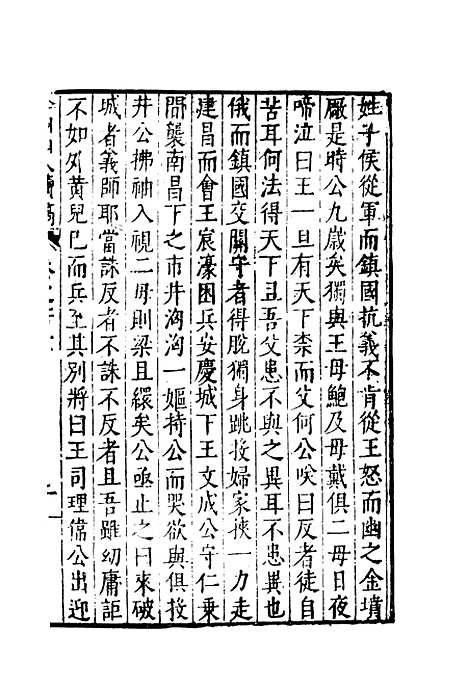 姓子侯從軍而鎮國抗義不肯從王怒而幽之金墳
厰是時公九歲矣獨與王母鮑及母戴俱二母日夜
啼泣曰王一旦有天下柰而父何公唉曰反者徒自
苦耳何法得天下且吾父患不與之異耳不患異也
俄而鎮國交關守者得脫獨身跳投婦家挾一力走
建昌而會王宸濠困兵安慶城下王文成公守仁乗
間襲南昌下之市井洶洶一嫗持公而哭欲與俱投
井公拂袖入視二母則梁且繯矣公亟止之曰來破
城者義師耶當誅反者不誅不反者且吾雖幼庸詎
不如外黄兒巳而兵至其別將曰王司理偹公出迎
山人續稿